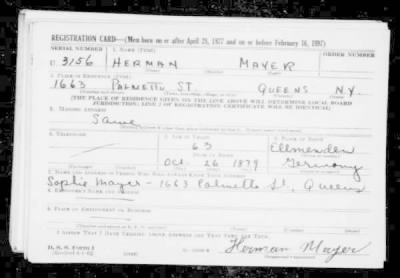 REGISTRATION CARD—(Men born on or after April 28, 1877 and on or before February 16, 1897)
SERIAL NUMBER 1. NAME (Print) ORDER NUMBER
U 3156 HERMAN MAYER
2. PLACE OF RESIDENCE (Print)
1663 PALMETTO ST. QUEENS N.Y.
(THE PLACE OF RESIDENCE GIVEN ON THE LINE ABOVE WILL DETERMINE LOCAL BOARD
JURISDICTION; LINE 2 OF REGISTRATION CERTIFICATE WILL BE IDENTICAL)
3. MAILING ADDRESS
Same
4. TELEPHONE 5. AGE IN YEARS 6. PLACE OF BIRTH
63 Ellmenden
DATE OF BIRTH
Oct. 26 1879 Germany
7. NAME AND ADDRESS OF PERSON WHO WILL ALWAYS KNOW YOUR ADDRESS
Sophie Mayer - 1663 Palmetto St, Queens
8. EMPLOYER'S NAME AND ADDRESS
9. PLACE OF EMPLOYMENT OR BUSINESS
I AFFIRM THAT I HAVE VERIFIED ABOVE ANSWERS AND THAT THEY ARE TRUE.
D. S. S. Form 1
(Revised 4-1-42) Herman Mayer